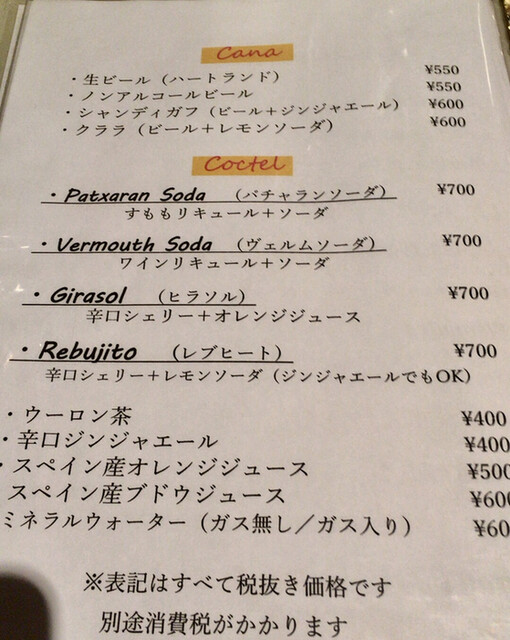 Cana
・生ビール（ハートランド） ¥550
・ノンアルコールビール ¥550
・シャンディガフ（ビール＋ジンジャエール） ¥600
・クララ（ビール＋レモンソーダ） ¥600
Coctel
・Patxaran Soda （パチャランソーダ） ¥700
すももリキュール＋ソーダ
・Vermouth Soda （ヴェルムソーダ） ¥700
ワインリキュール＋ソーダ
・Girasol （ヒラソル） ¥700
辛口シェリー＋オレンジジュース
・Rebujito （レブヒート） ¥700
辛口シェリー＋レモンソーダ（ジンジャエールでもOK）
・ウーロン茶 ¥400
・辛口ジンジャエール ¥400
・スペイン産オレンジジュース ¥500
スペイン産ブドウジュース ¥600
ミネラルウォーター（ガス無し／ガス入り） ¥60
※表記はすべて税抜き価格です
別途消費税がかかります